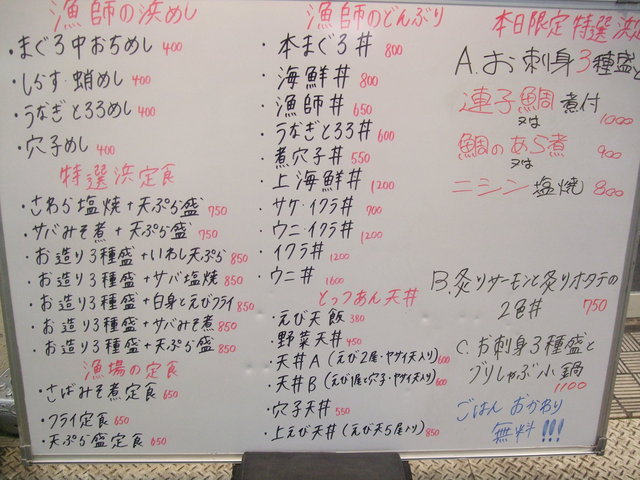 漁師の浜めし
・まぐろ中おちめし 400
・しらす・蛸めし 400
・うなぎとろろめし 400
・穴子めし 400
特選浜定食
・さわら塩焼+天ぷら盛 750
・サバみそ煮+天ぷら盛 750
・お造り3種盛+いわし天ぷら 850
・お造り3種盛+サバ塩焼 850
・お造り3種盛+白身とえびフライ 850
・お造り3種盛+サバみそ煮 850
・お造り3種盛+天ぷら盛 850
漁場の定食
・さばみそ煮定食 650
・フライ定食 650
・天ぷら盛定食 650
漁師のどんぶり
・本まぐろ丼 800
・海鮮丼 800
・漁師丼 650
・うなぎとろろ丼 600
・煮穴子丼 550
・上海鮮丼 1200
・サケ・イクラ丼 700
・ウニ・イクラ丼 1200
・イクラ丼 1200
・ウニ丼 1600
とっつあん天丼
・えび天飯 380
・野菜天丼 450
・天丼A(えび2尾・ヤサイ天入り) 600
・天丼B(えび1尾と穴子・ヤサイ天入り) 600
・穴子天丼 550
・上えび天丼(えび天5尾入り) 850
本日限定 特選 浜定
A.お刺身3種盛
連子鯛 煮付
又は 1000
鯛のあら煮
又は 900
ニシン塩焼 800
B.炙りサーモンと炙りホタテの
2色丼 750
C.お刺身3種盛と
ブリしゃぶ小鍋
1100
ごはん おかわり
無料!!!